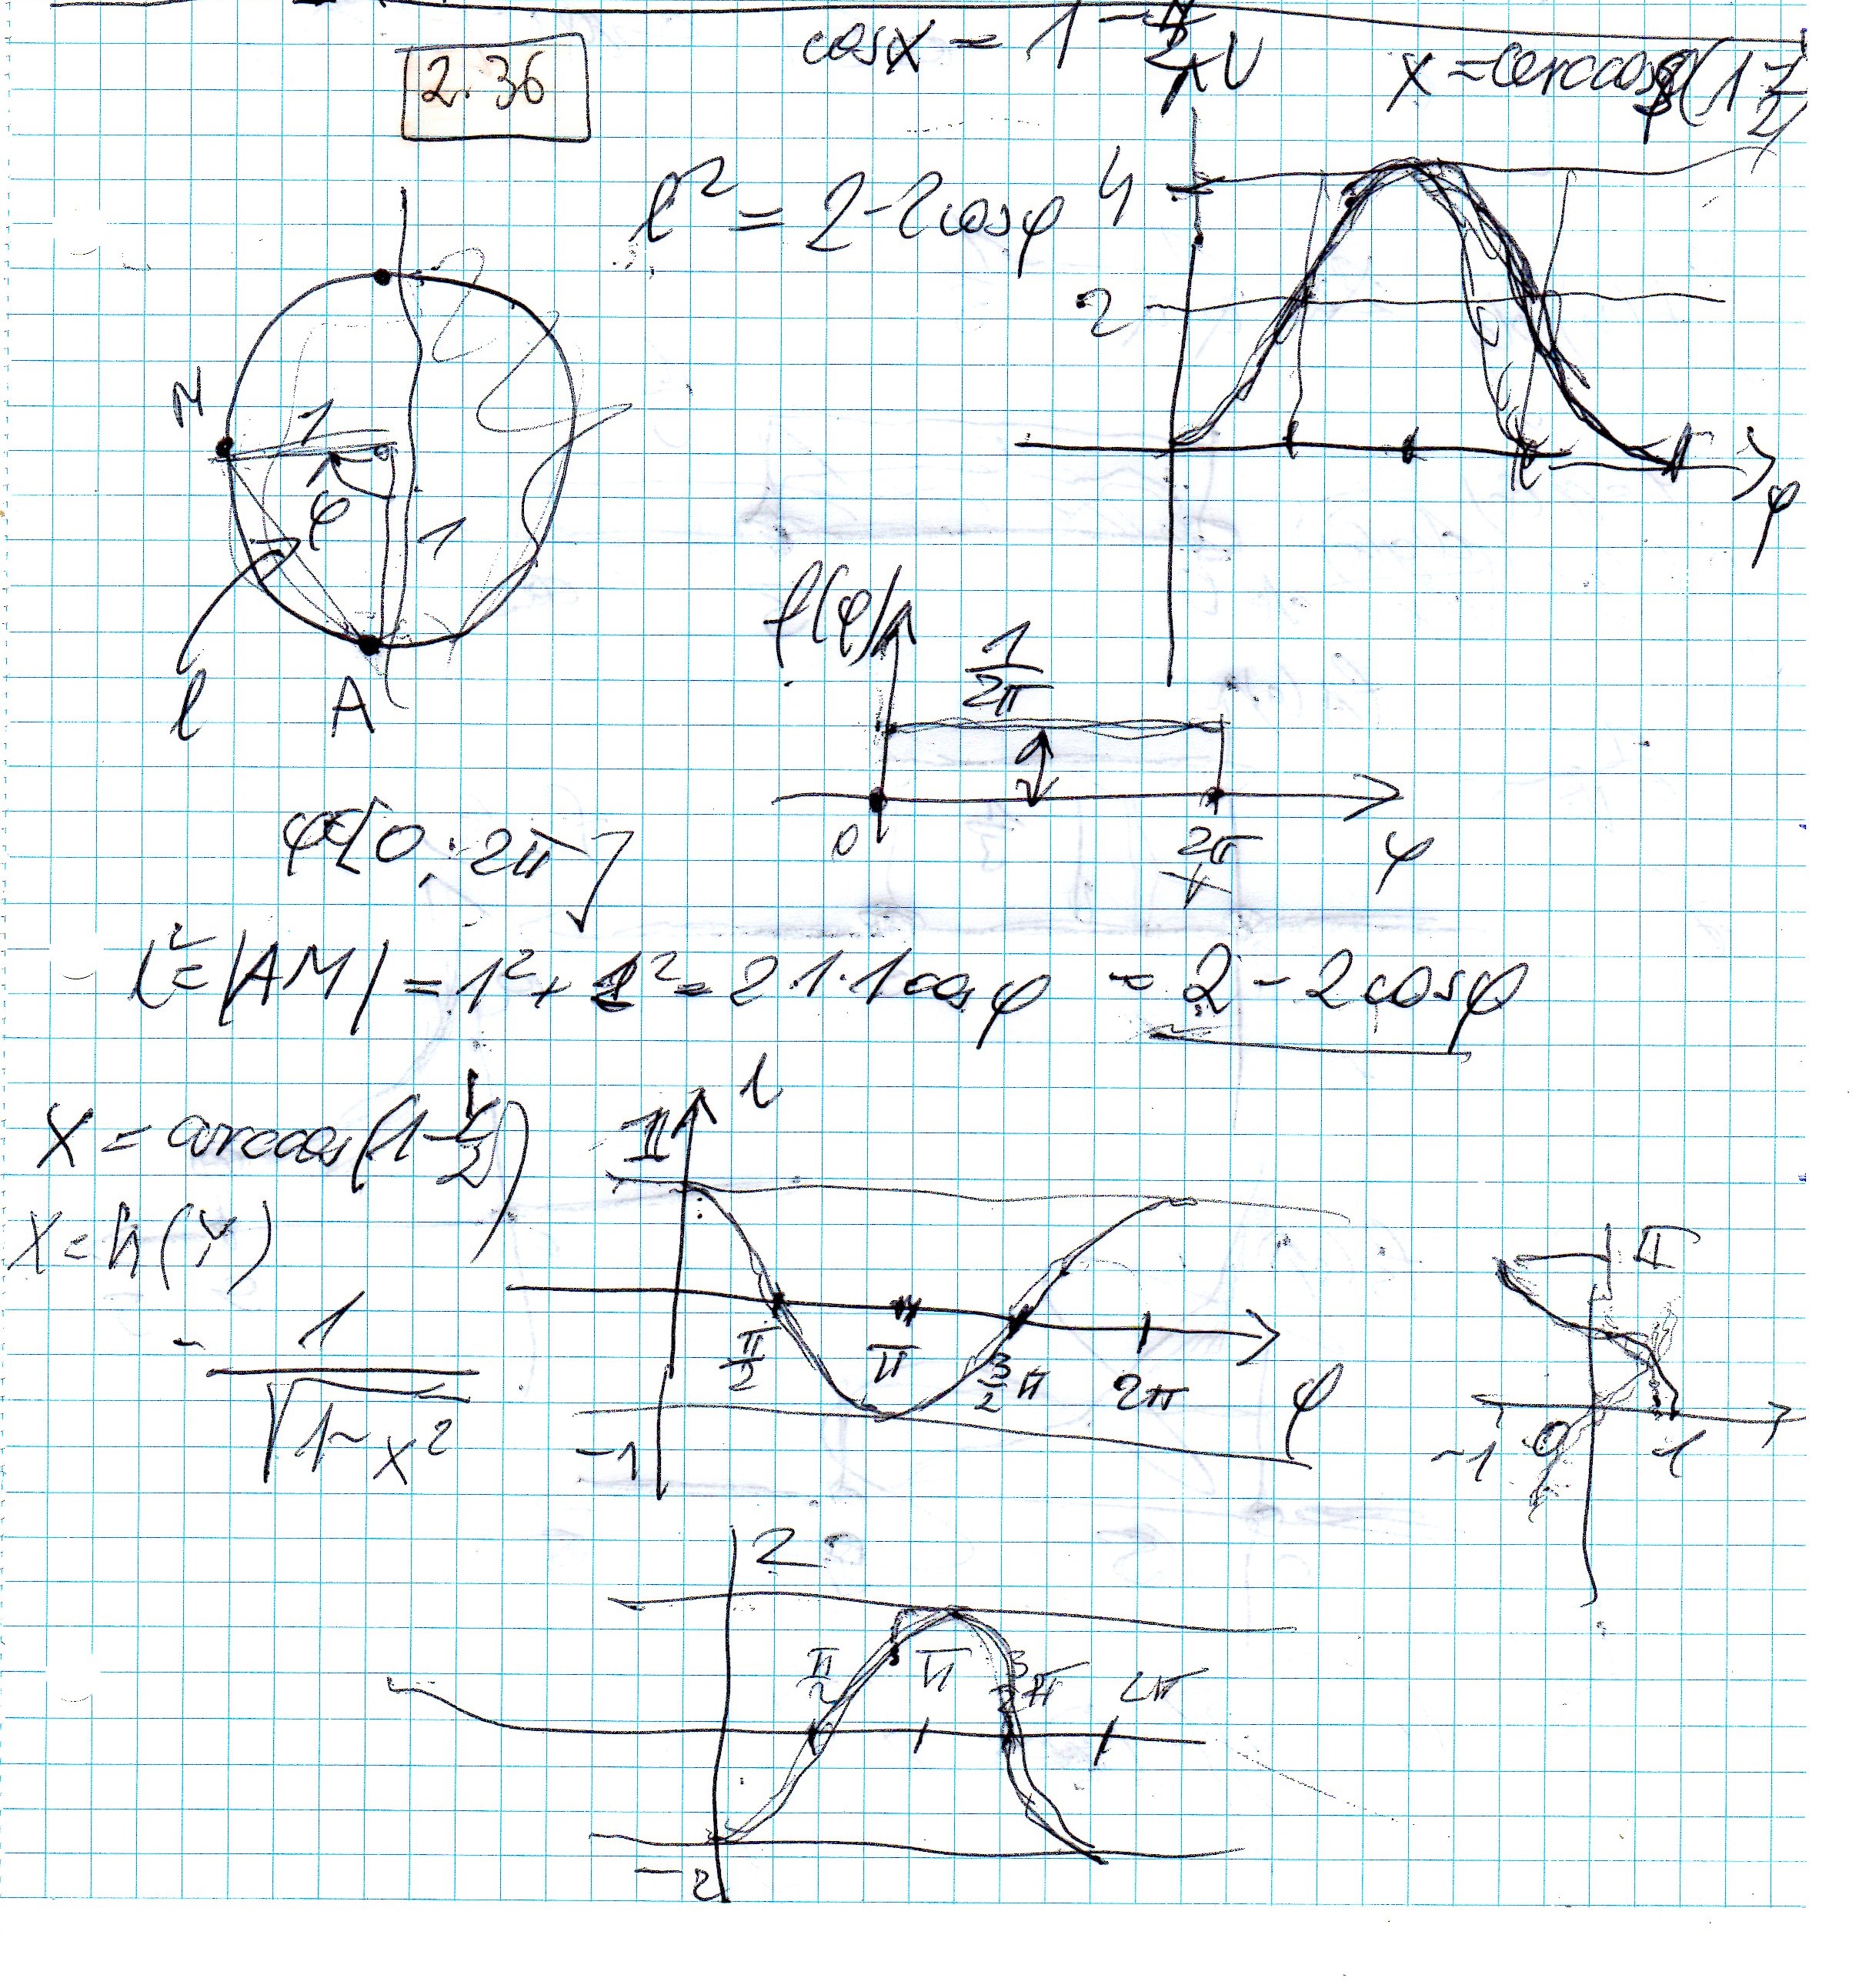 cosx = 1 - y/2
x = arccos(1 - y/2)
2.36
l² = 2-2cosφ
4
2
φ
M
1
φ
1
l
A
f(φ)
1/2π
0
2π
φ
φ∈[0;2π]
l² = |AM| = 1² + 1² = 2·1·1cosφ = 2 - 2cosφ
x = arccos(1 - y/2)
x = h(y)
- 1/√(1-x²)
l
1
π/2
π
3/2 π
2π
φ
-1
π
-1
0
1
2
π/2
π
3/2 π
2π
-2